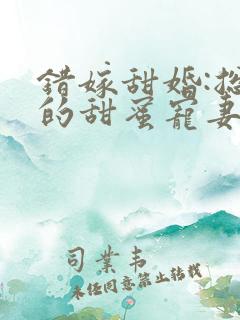 錯嫁甜婚:
的甜蜜寵妻
司業韦
未经同意禁止转载